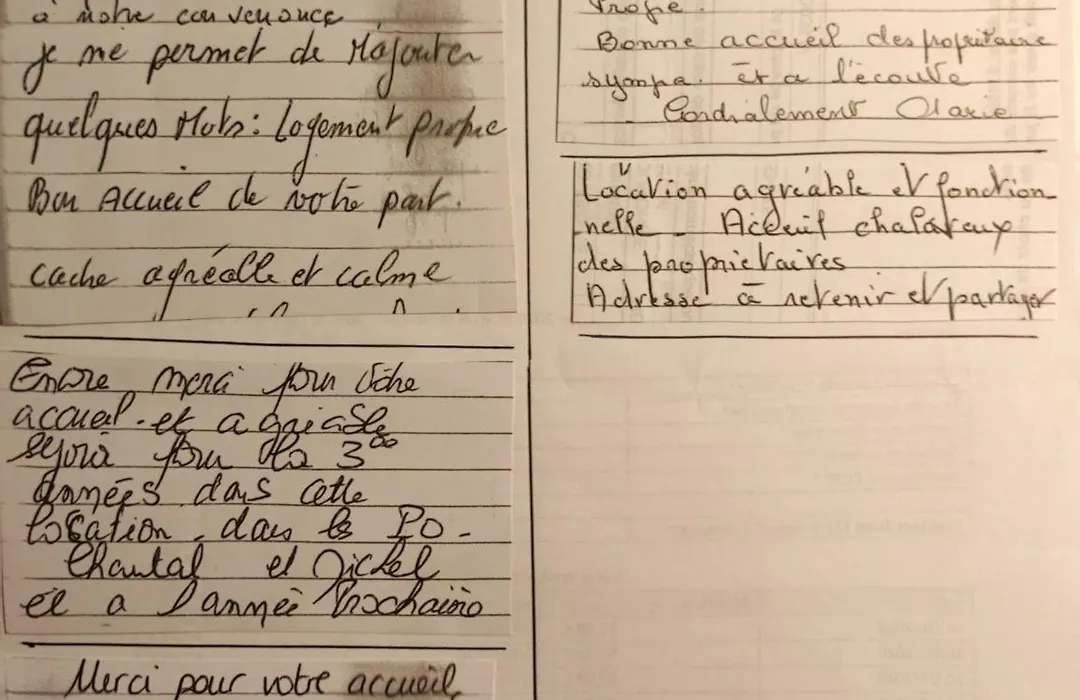 a notre convenance
je me permet de Rajouter
quelques Mots: Logement propre
Bon Accueil de votre part.
cache agréable et calme
Encore merci pour votre
accueil. et agréable
séjour pour la 3
années dans cette
location. dans les PO-
Chantal et Michel
et a l'année Prochaine
Merci pour votre accueil,
Bonne accueil des propritaire
sympa. Et a l'écoute
Cordialement
Location agréable et fonction
nelle. Acceuil chaleureux
des propriétaires
Adresse à retenir et partager